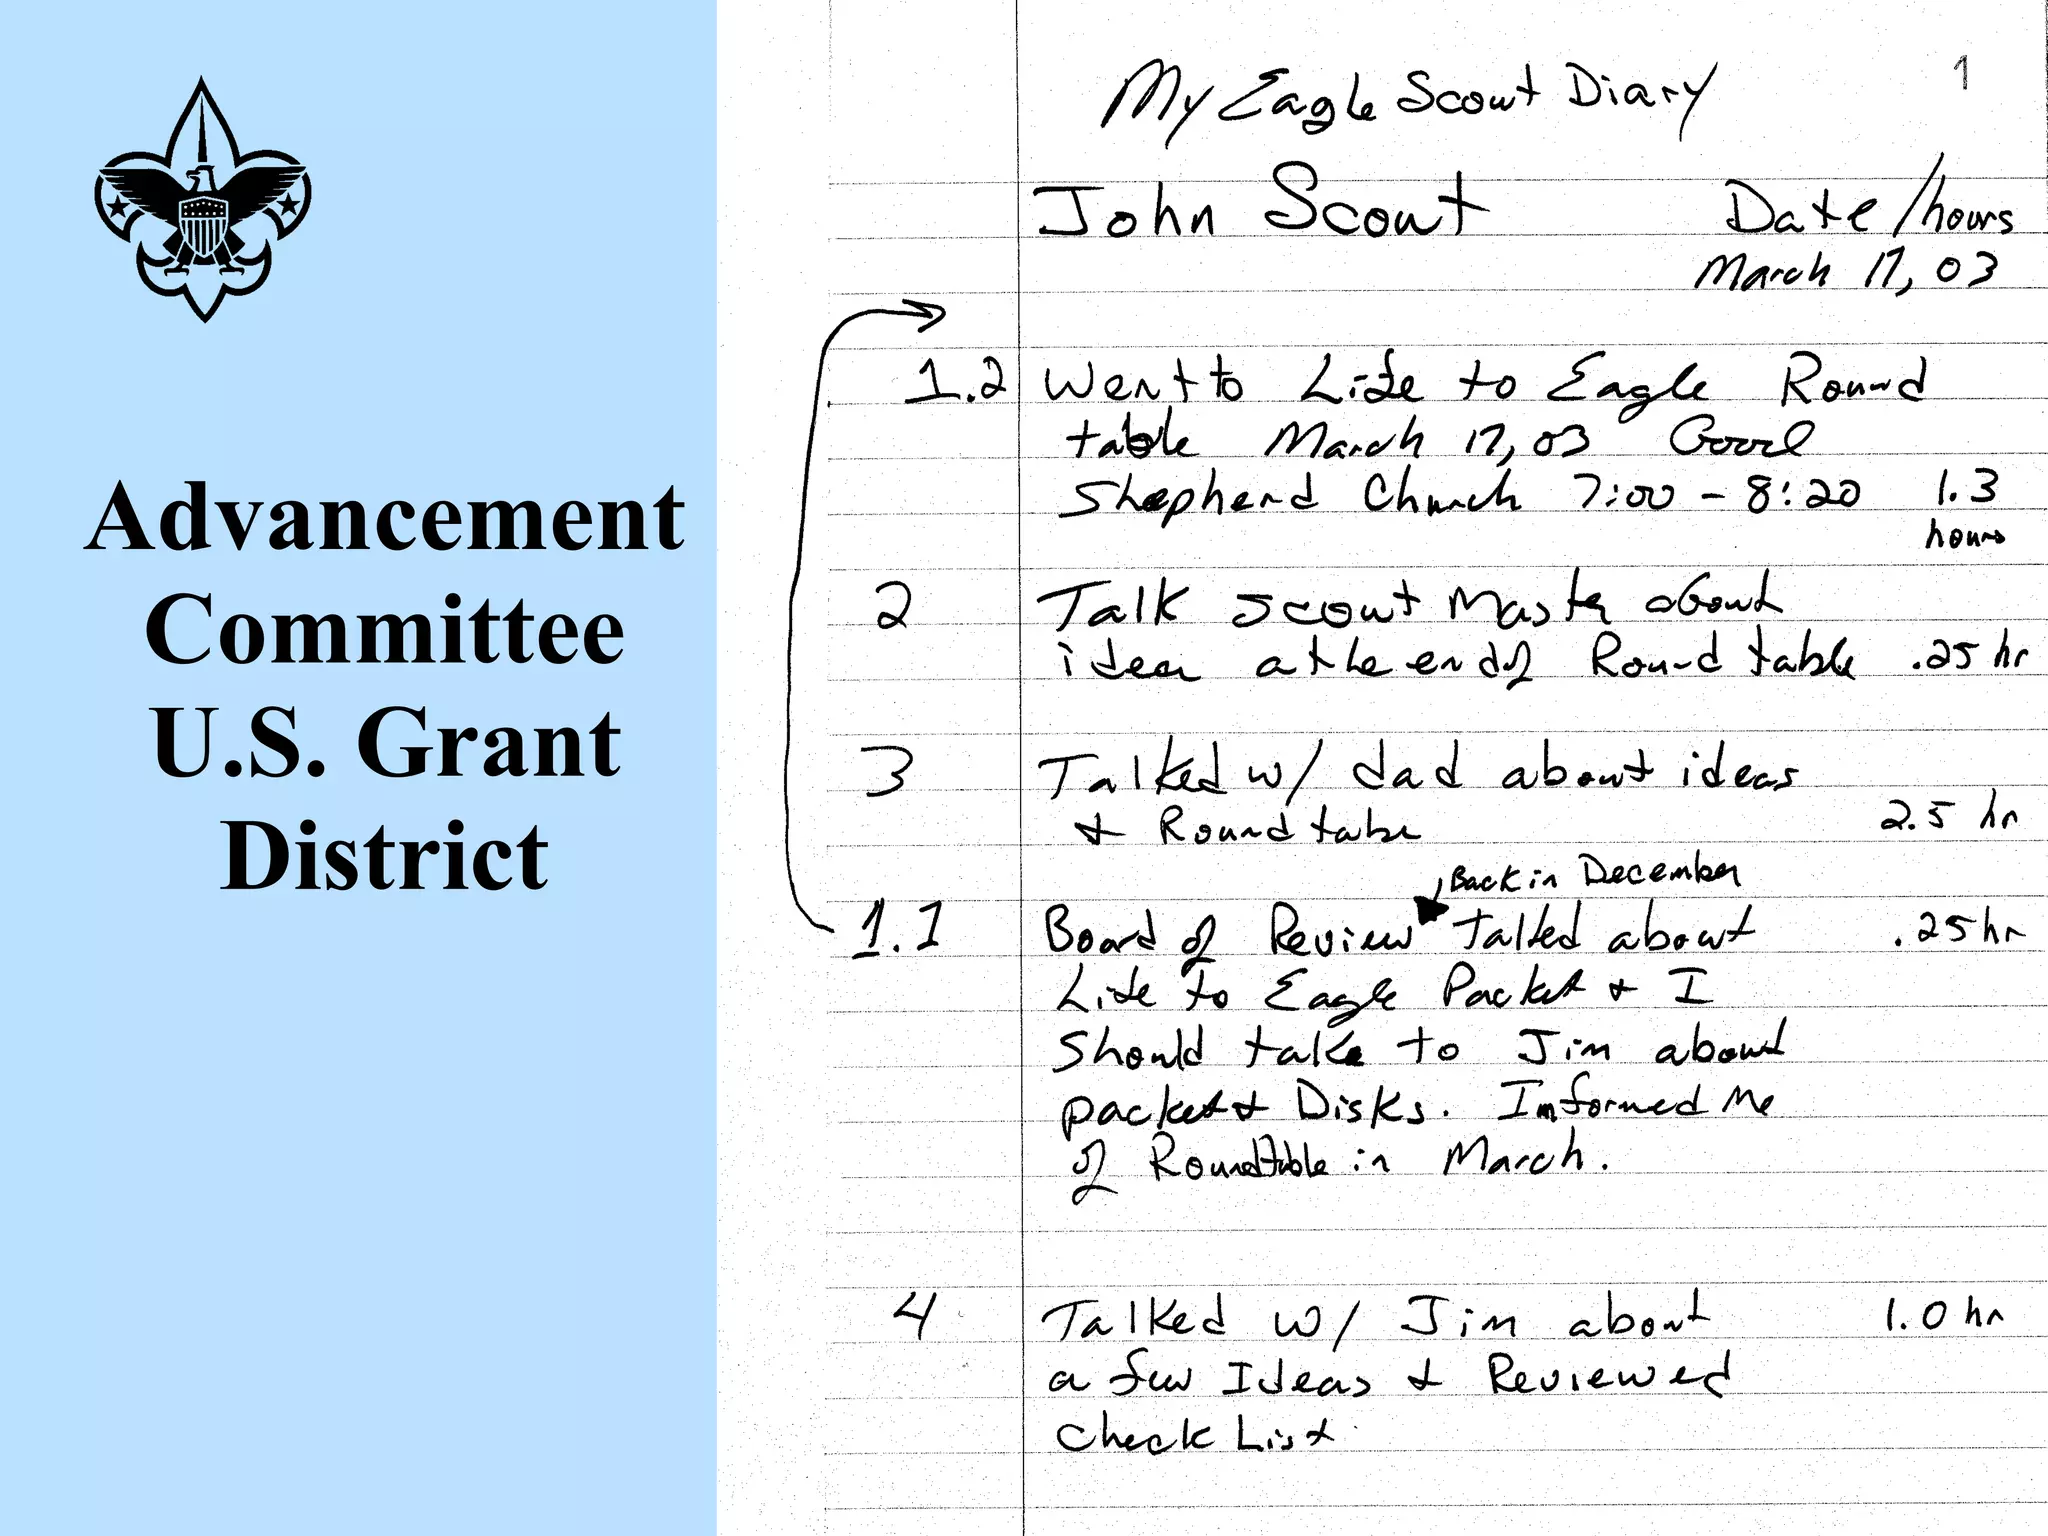 Advancement
Committee
U.S. Grant
District
My Eagle Scout Diary 1
John Scout Date/hours
March 17, 03
1.2 Went to Life to Eagle Round
table March 17, 03 Good
Shepherd Church 7:00 - 8:20 1.3
hours
2 Talk Scout Master about
idea at the end of Round table .25 hr
3 Talked w/ dad about ideas
+ Roundtable 2.5 hr
Back in December
1.1 Board of Review Talked about .25 hr
Life to Eagle Packet + I
Should talk to Jim about
packet + Disks. Informed Me
of Roundtable in March.
4 Talked w/ Jim about 1.0 hr
a few Ideas + Reviewed
Check List